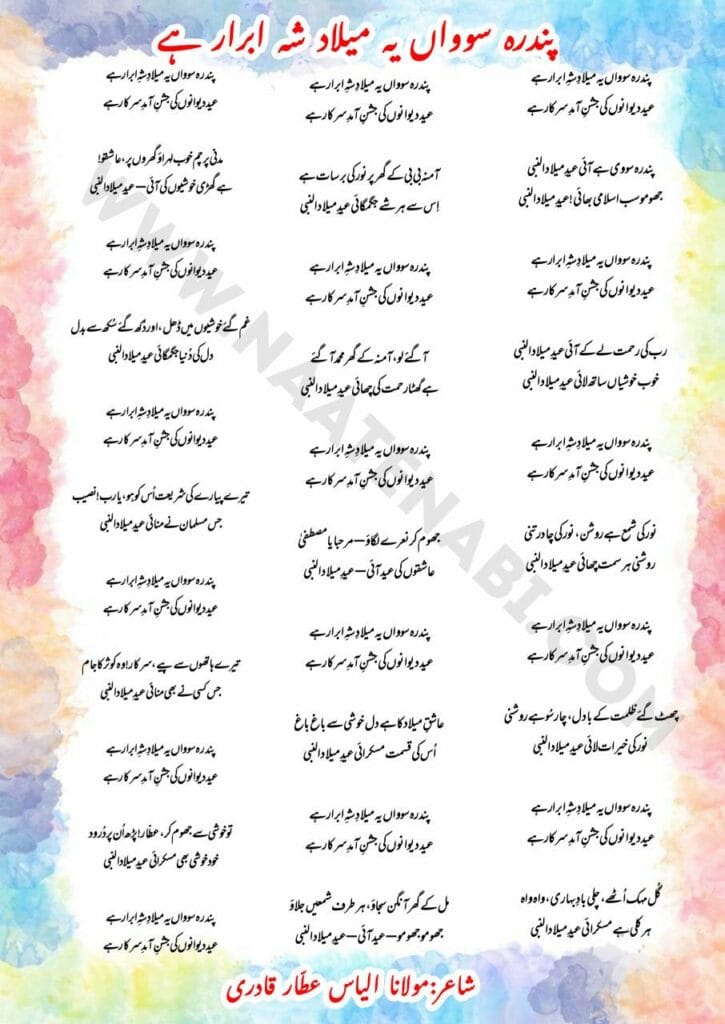 پندرہ سوواں یہ میلاد شہ ابرار ہے
پندرہ سوواں یہ میلادِ شہِ ابرار ہے
عید دیوانوں کی جشنِ آمدِ سرکار ہے
پندرہ سووی ہے آئی عیدِ میلادالنبی
جھومو سب اسلامی بھائی! عیدِ میلادالنبی
پندرہ سوواں یہ میلادِ شہِ ابرار ہے
عید دیوانوں کی جشنِ آمدِ سرکار ہے
رب کی رحمت لے کے آئی عیدِ میلادالنبی
خوب خوشیاں ساتھ لائی عیدِ میلادالنبی
پندرہ سوواں یہ میلادِ شہِ ابرار ہے
عید دیوانوں کی جشنِ آمدِ سرکار ہے
نور کی شمع ہے روشن، نور کی چادر تنی
روشنی ہر سمت چھائی عیدِ میلادالنبی
پندرہ سوواں یہ میلادِ شہِ ابرار ہے
عید دیوانوں کی جشنِ آمدِ سرکار ہے
چھٹ گئے ظلمت کے بادل، چار سُو ہے روشنی
نور کی خیرات لائی عیدِ میلادالنبی
پندرہ سوواں یہ میلادِ شہِ ابرار ہے
عید دیوانوں کی جشنِ آمدِ سرکار ہے
گُل مہک اُٹھے، چلی بادِ بہاری، واہ واہ
ہر کلی ہے مسکرائی عیدِ میلادالنبی
پندرہ سوواں یہ میلادِ شہِ ابرار ہے
عید دیوانوں کی جشنِ آمدِ سرکار ہے
آمنہ بی بی کے گھر پر نور کی برسات ہے
اِس سے ہر شے جگمگائی عیدِ میلادالنبی
پندرہ سوواں یہ میلادِ شہِ ابرار ہے
عید دیوانوں کی جشنِ آمدِ سرکار ہے
آگئے لو، آمنہ کے گھر محمد آگئے
ہے گھٹا رحمت کی چھائی عیدِ میلادالنبی
پندرہ سوواں یہ میلادِ شہِ ابرار ہے
عید دیوانوں کی جشنِ آمدِ سرکار ہے
جھوم کر نعرے لگاؤ – مرحبا یا مصطفیٰ
عاشقوں کی عید آئی – عیدِ میلادالنبی
پندرہ سوواں یہ میلادِ شہِ ابرار ہے
عید دیوانوں کی جشنِ آمدِ سرکار ہے
عاشقِ میلاد کا ہے دل خوشی سے باغ باغ
اُس کی قسمت مسکرائی عیدِ میلادالنبی
پندرہ سوواں یہ میلادِ شہِ ابرار ہے
عید دیوانوں کی جشنِ آمدِ سرکار ہے
مل کے گھر آنگن سجاؤ، ہر طرف شمعیں جلاؤ
جھومو جھومو – عید آئی – عیدِ میلادالنبی
پندرہ سوواں یہ میلادِ شہِ ابرار ہے
عید دیوانوں کی جشنِ آمدِ سرکار ہے
مدنی پرچم خوب لہراؤ گھروں پر، عاشقو!
ہے گھڑی خوشیوں کی آئی – عیدِ میلادالنبی
پندرہ سوواں یہ میلادِ شہِ ابرار ہے
عید دیوانوں کی جشنِ آمدِ سرکار ہے
غم گئے خوشیوں میں ڈھل، اور دُکھ گئے سُکھ سے بدل
دل کی دُنیا جگمگائی عیدِ میلادالنبی
پندرہ سوواں یہ میلادِ شہِ ابرار ہے
عید دیوانوں کی جشنِ آمدِ سرکار ہے
تیرے پیارے کی شریعت اُس کو ہو، یا رب! نصیب
جس مسلمان نے منائی عیدِ میلادالنبی
پندرہ سوواں یہ میلادِ شہِ ابرار ہے
عید دیوانوں کی جشنِ آمدِ سرکار ہے
تیرے ہاتھوں سے پیے، سرکار! وہ کوثر کا جام
جس کسی نے بھی منائی عیدِ میلادالنبی
پندرہ سوواں یہ میلادِ شہِ ابرار ہے
عید دیوانوں کی جشنِ آمدِ سرکار ہے
تو خوشی سے جھوم کر، عطار! پڑھ اُن پر دُرود
خود خوشی بھی مسکرائی عیدِ میلادالنبی
پندرہ سوواں یہ میلادِ شہِ ابرار ہے
عید دیوانوں کی جشنِ آمدِ سرکار ہے
شاعر: مولانا الیاس عطّار قادری
WWW.NAATENABI.COM